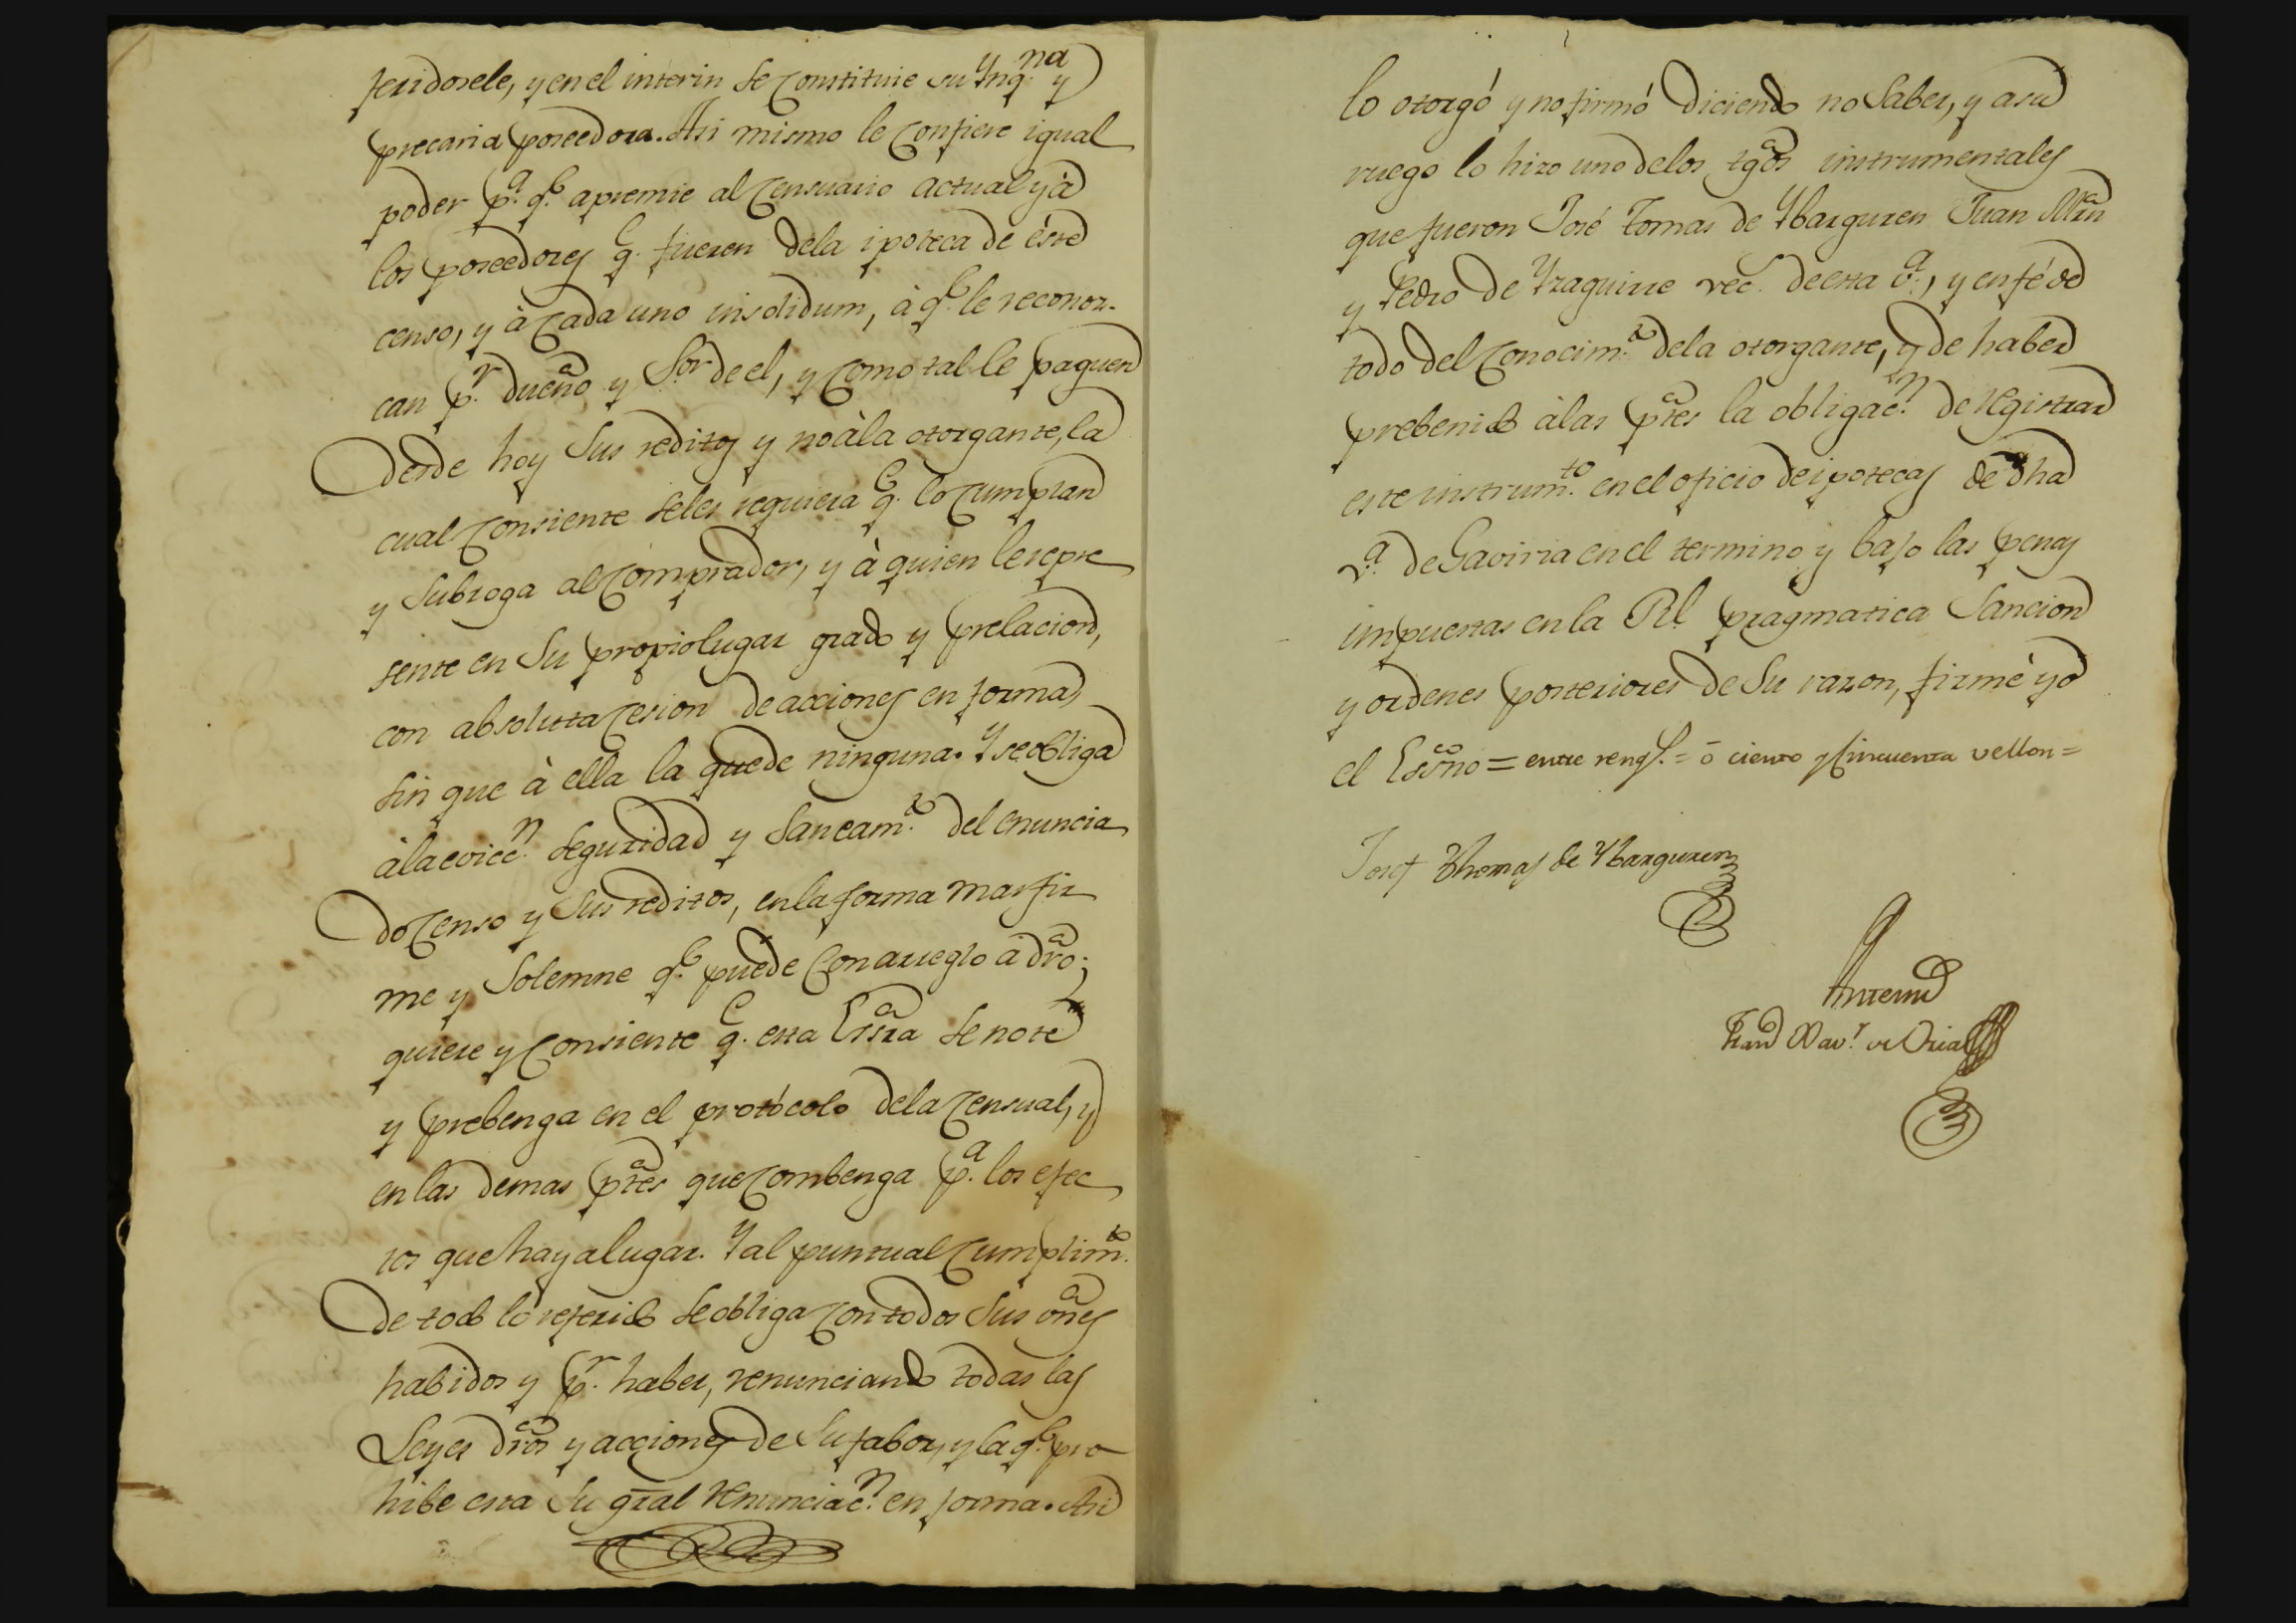 feridosele, y en el interin se constituie su Ynq.na y
precaria poseedora. Asi mismo le confiere igual
poder p.a q.e apremie al censuario actual y à
los poseedores q.e fueren dela ipoteca de éste
censo, y à cada uno insolidum, à q.e le reconoz-
can p.r dueño y S.or de el, y como tal le paguen
desde hoy sus reditos y no àla otorgante, la
cual consiente seles requiera q.e lo cumplan
y subroga al comprador, y à quien le repre
sente en su propio lugar grado y prelacion,
con absoluta cesion de acciones en forma
sin que à ella la quede ninguna. Y se obliga
àla evicc.n seguridad y saneam.to del enuncia
do censo y sus reditos, en la forma mas fir
me y solemne q.e puede con arreglo à dro;
quiere y consiente q.e esta Essra se note
y prebenga en el protócolo dela censual, y
en las demas ptes que combenga p.a los efec
tos que haya lugar. Y al puntual cumplim.to
de todo lo referido se obliga con todos sus vnes
habidos y p.r haber, renunciando todas las
Leyes dros y acciones de su fabor, y la q.e pro
hibe esta su gral renunciac.n en forma. Asi
lo otorgó y no firmó diciendo no saber, y a su
ruego lo hizo uno delos tgos instrumentales
que fueron José Tomas de Ybarguren Juan Mrn
y Pedro de Yzaguirre vec.s de esta v.a, y en fé de
todo del conocim.to dela otorgante, y de haber
prebenido àlas ptes la obligac.n de registrar
este instrum.to en el oficio de ipotecas de dha
v.a de Gaviria en el termino y bajo las penas
impuestas en la Rl. pragmatica sancion
y ordenes posteriores de su razon, firmé yo
el Essno = entre rengs. = ō ciento y cincuenta vellon =
Josef Thomas de Ybarguren
Antemi
Fran.co Xav.r de Oria